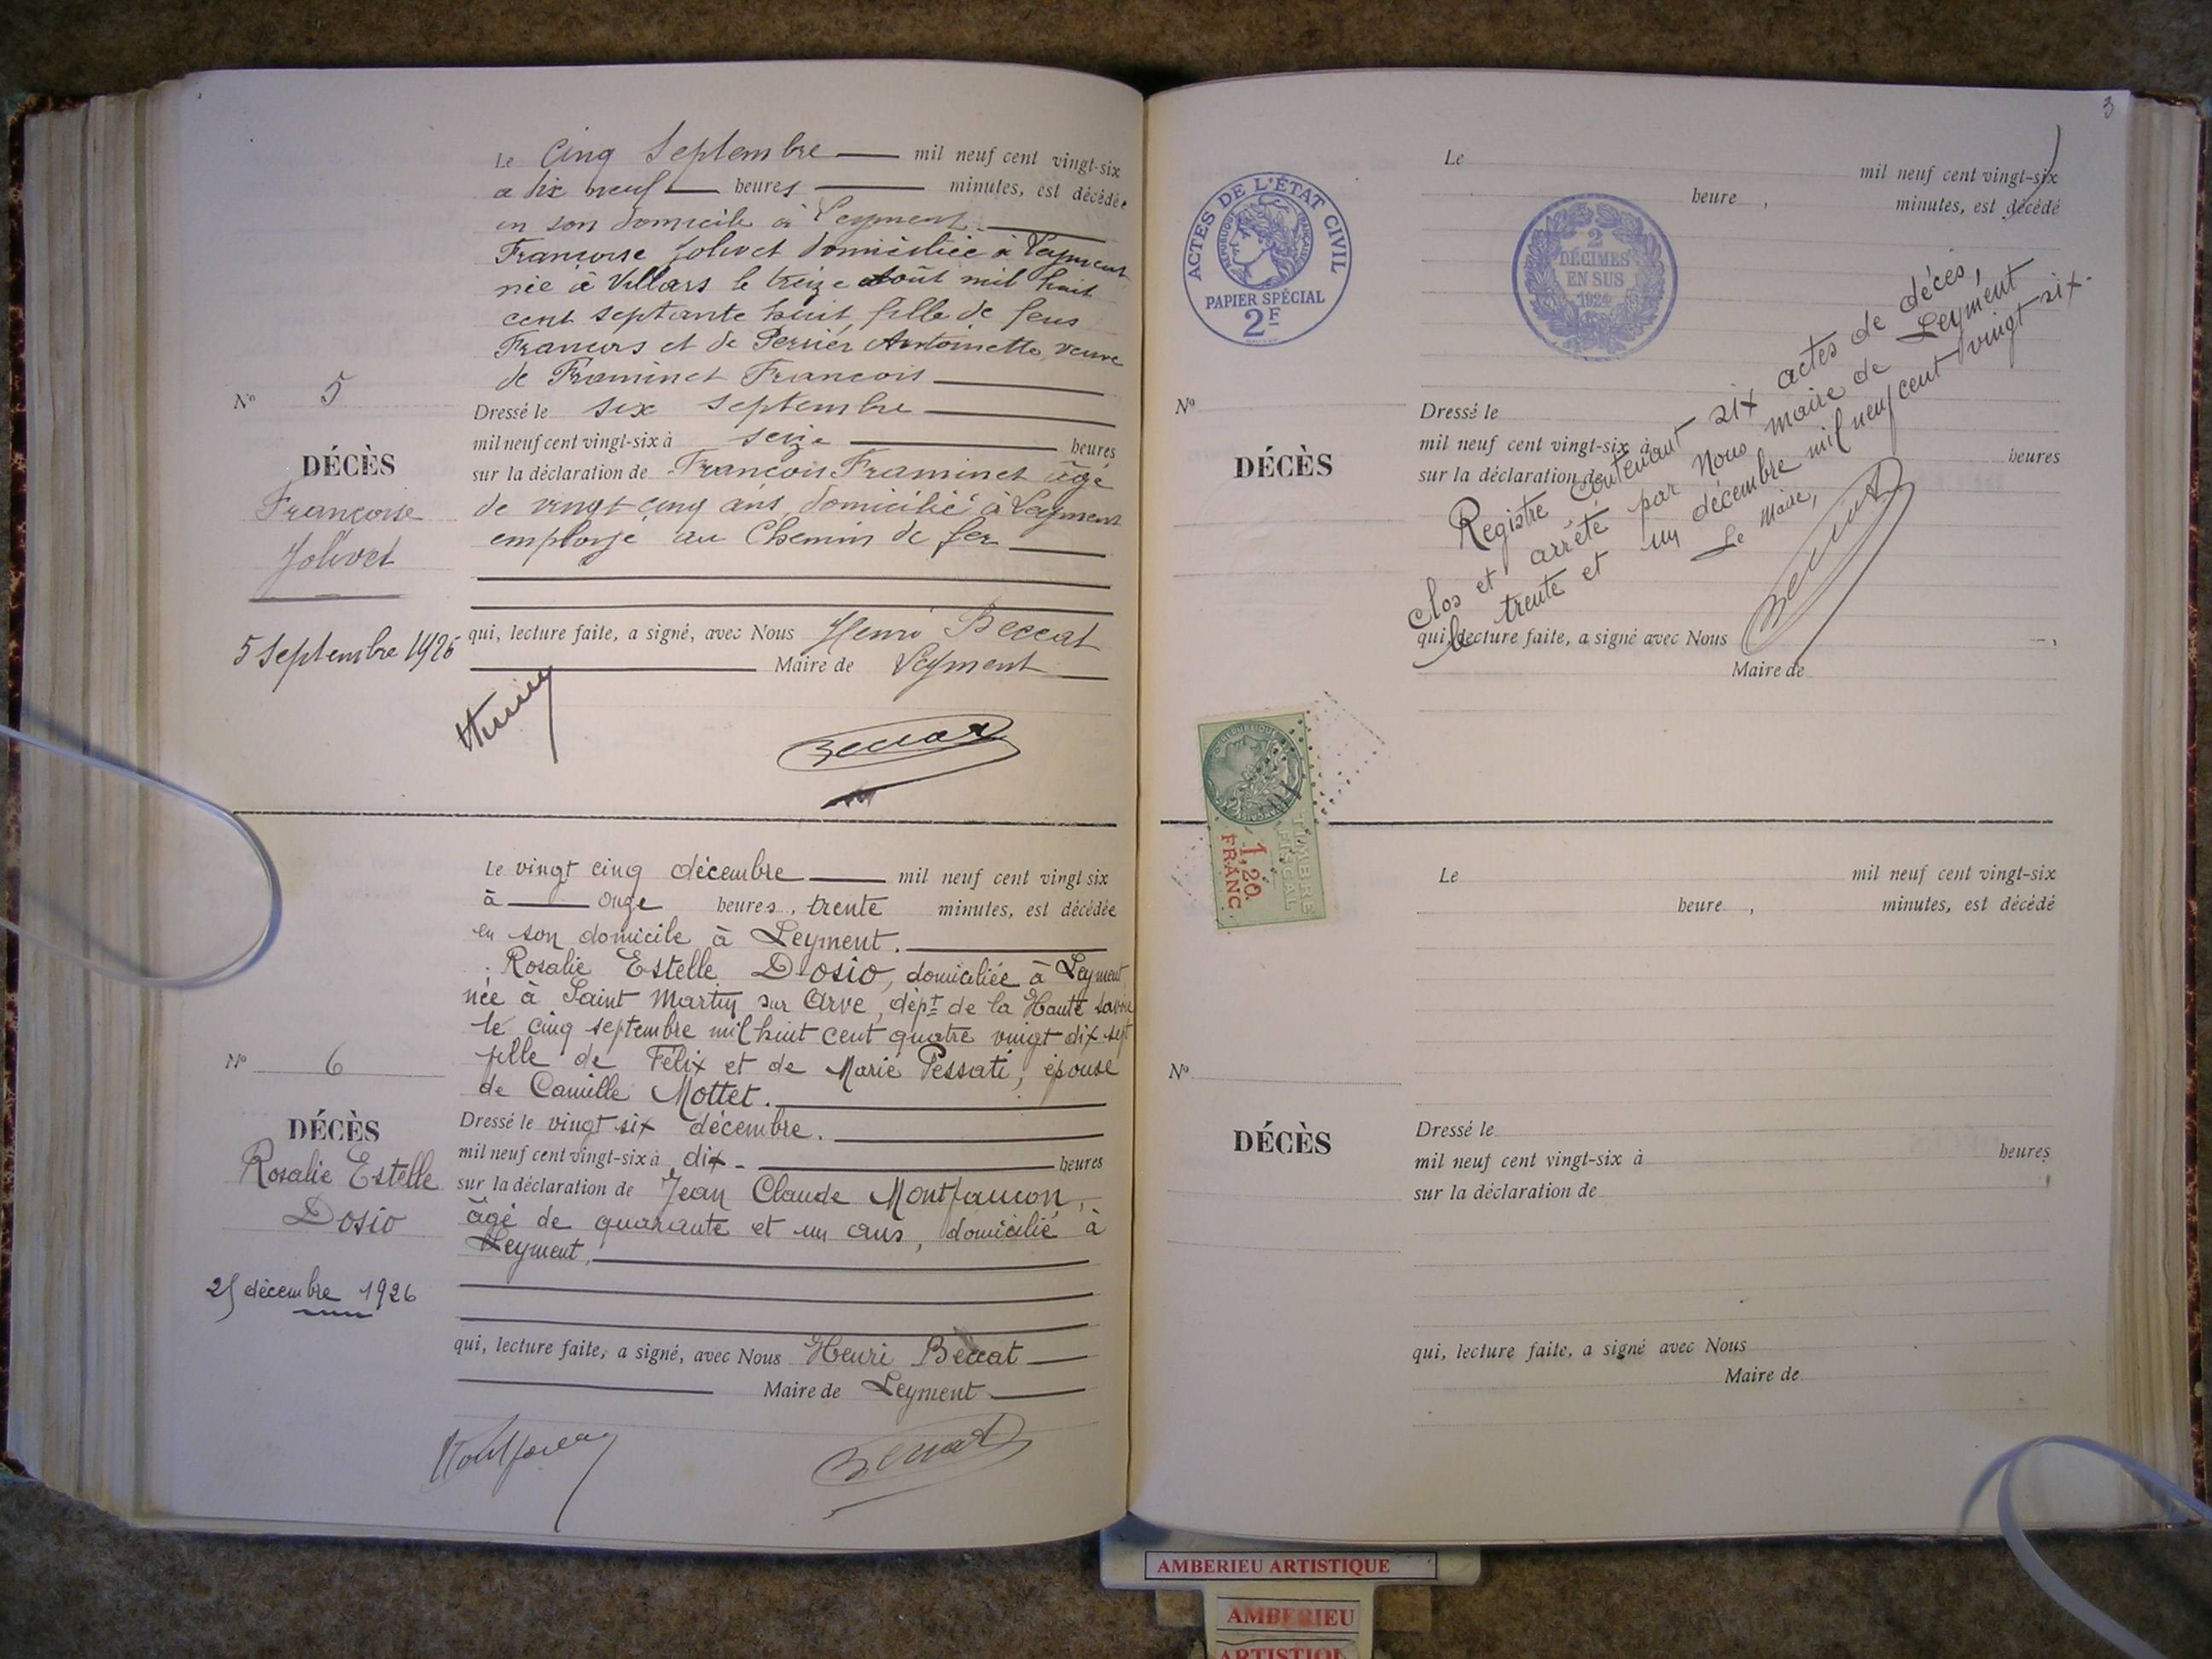 Le Cinq Septembre mil neuf cent vingt-six
a dix neuf heures minutes, est décédée
en son domicile à Leyment.
Françoise Jolivet domiciliée à Leyment
née à Villars le treize Août mil huit
cent septante huit, fille de feus
François et de Perrier Antoinette, veuve
de Framinet François
Nº 5
Dressé le six septembre
mil neuf cent vingt-six à seize heures
DÉCÈS
sur la déclaration de François Framinet âgé
Françoise
de vingt cinq ans, domicilié à Leyment
Jolivet
employé au Chemin de fer
5 Septembre 1926
qui, lecture faite, a signé, avec Nous Henri Beccat
Maire de Leyment
Beccat
Le vingt cinq décembre mil neuf cent vingt six
à onze heures, trente minutes, est décédée
en son domicile à Leyment.
Rosalie Estelle Dosio, domiciliée à Leyment,
née à Saint Martin sur Arve, dépt de la Haute Savoie
le cinq septembre mil huit cent quatre vingt dix sept
fille de Félix et de Marie Pessati, épouse
de Camille Mottet.
Nº 6
Dressé le vingt six décembre.
mil neuf cent vingt-six à dix - heures
DÉCÈS
sur la déclaration de Jean Claude Montfaucon,
Rosalie Estelle
Dosio
âgé de quarante et un ans, domicilié à
Leyment,
25 décembre 1926
qui, lecture faite, a signé, avec Nous Henri Beccat
Maire de Leyment
Beccat
3
ACTES DE L'ÉTAT CIVIL
RÉPUBLIQUE FRANÇAISE
PAPIER SPÉCIAL
2F
2
DÉCIMES
EN SUS
Le
mil neuf cent vingt-six
heure , minutes, est décédé
Nº
DÉCÈS
Dressé le
mil neuf cent vingt-six à heures
sur la déclaration de
qui, lecture faite, a signé avec Nous
Maire de
Registre contenant six actes de décès,
clos et arrêté par Nous maire de Leyment
le trente et un décembre mil neuf cent vingt six.
Le Maire,
Beccat
TIMBRE
FISCAL
1,20
FRANC
Le mil neuf cent vingt-six
heure , minutes, est décédé
Nº
DÉCÈS
Dressé le
mil neuf cent vingt-six à heures
sur la déclaration de
qui, lecture faite, a signé avec Nous
Maire de
AMBERIEU ARTISTIQUE
AMBERIEU